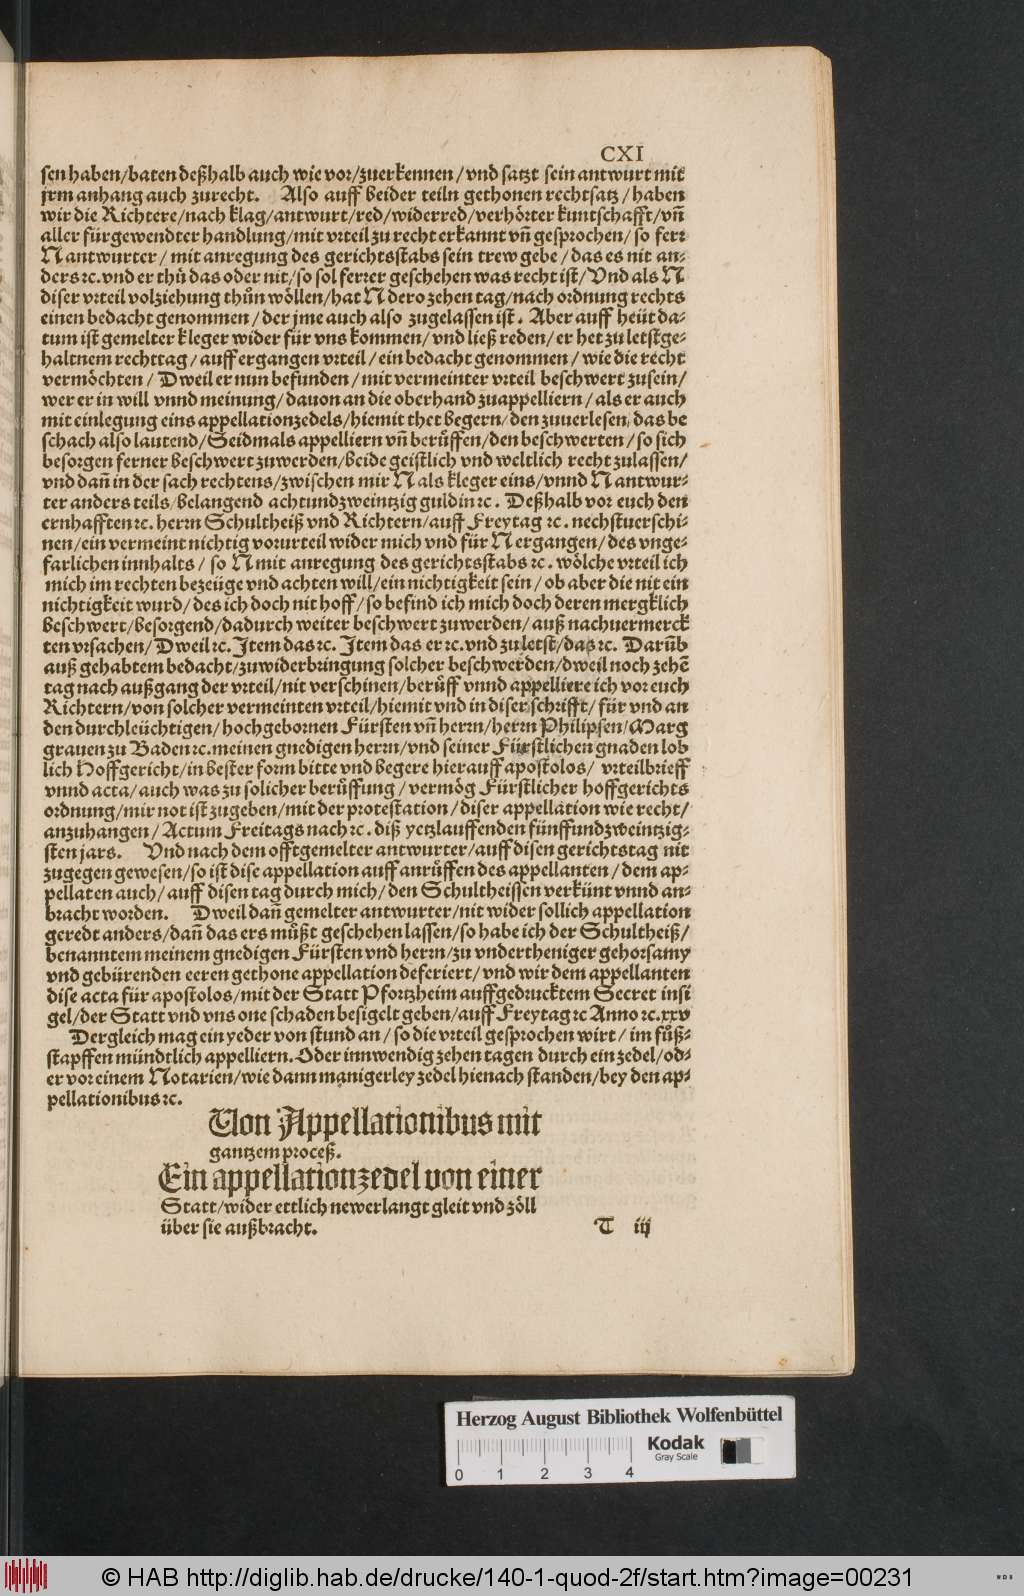 CXI
sen haben/baten deßhalb auch wie vor/zuerkennen/vnd satzt sein antwurt mit
jrm anhang auch zurecht. Also auff beider teiln gethonen rechtsatz/haben
wir die Richtere/nach klag/antwurt/red/widerred/verhörter kuntschafft/vn̄
aller fürgewendter handlung/mit vrteil zu recht erkannt vn̄ gesprochen/so ferr
N antwurter/mit anregung des gerichtsstabs sein trew gebe/das es nit an-
ders ⁊c. vnd er thü das oder nit/so sol ferrer geschehen was recht ist/Vnd als N
diser vrteil volziehung thůn wöllen/hat N dero zehen tag/nach ordnung rechts
einen bedacht genommen/der jme auch also zugelassen ist. Aber auff heüt da-
tum ist gemelter kleger wider für vns kommen/vnd ließ reden/er het zu letstge-
haltnem rechttag/auff ergangen vrteil/ein bedacht genommen/wie die recht
vermöchten/Dweil er nun befunden/mit vermeinter vrteil beschwert zusein/
wer er in will vnnd meinung/dauon an die oberhand zuappelliern/als er auch
mit einlegung eins appellationzedels/hiemit thet begern/den zuuerlesen/das be
schach also lautend/Seidmals appelliern vn̄ berůffen/den beschwerten/so sich
besorgen ferner beschwert zuwerden/beide geistlich vnd weltlich recht zulassen/
vnd dan̄ in der sach rechtens/zwischen mir N als kleger eins/vnnd N antwur-
ter anders teils/belangend achtundzweintzig guldin ⁊c. Deßhalb vor euch den
ernhafften ⁊c. herrn Schultheiß vnd Richtern/auff Freytag ⁊c. nechstuerschi-
nen/ein vermeint nichtig vorurteil wider mich vnd für N ergangen/des vnge-
farlichen innhalts/so N mit anregung des gerichtsstabs ⁊c. wölche vrteil ich
mich im rechten bezeüge vnd achten will/ein nichtigkeit sein/ob aber die nit ein
nichtigkeit wurd/des ich doch nit hoff/so befind ich mich doch deren mergklich
beschwert/besorgend/dadurch weiter beschwert zuwerden/auß nachuermerck
ten vrsachen/Dweil ⁊c. Item das ⁊c. Item das er ⁊c. vnd zu letst/das ⁊c. Darūb
auß gehabtem bedacht/zuwiderbringung solcher beschwerden/dweil noch zehē
tag nach außgang der vrteil/nit verschinen/berůff vnnd appelliere ich vor euch
Richtern/von solcher vermeinten vrteil/hiemit vnd in diser schrifft/für vnd an
den durchleüchtigen/hochgebornen Fürsten vn̄ herrn/herrn Philipsen/Marg
grauen zu Baden ⁊c. meinen gnedigen herrn/vnd seiner Fürstlichen gnaden lob
lich Hoffgericht/in bester form bitte vnd begere hierauff apostolos/vrteilbrieff
vnnd acta/auch was zu solicher berůffung/vermög Fürstlicher hoffgerichts
ordnung/mir not ist zugeben/mit der protestation/diser appellation wie recht/
anzuhangen/Actum Freitags nach ⁊c. diß yetzlauffenden fünffundzweintzig-
sten jars. Vnd nach dem offtgemelter antwurter/auff disen gerichtstag nit
zugegen gewesen/so ist dise appellation auff anrůffen des appellanten/dem ap-
pellaten auch/auff disen tag durch mich/den Schultheissen verkünt vnnd an-
bracht worden. Dweil dan̄ gemelter antwurter/nit wider sollich appellation
geredt anders/dan̄ das ers můßt geschehen lassen/so habe ich der Schultheiß/
benanntem meinem gnedigen Fürsten vnd herrn/zu vndertheniger gehorsamy
vnd gebürenden eeren gethone appellation deferiert/vnd wir dem appellanten
dise acta für apostolos/mit der Statt Pfortzheim auffgedrucktem Secret insi
gel/der Statt vnd vns one schaden besigelt geben/auff Freytag ⁊c Anno ⁊c. xxv
Dergleich mag ein yeder von stund an/so die vrteil gesprochen wirt/im fůß-
stapffen mündtlich appelliern. Oder innwendig zehen tagen durch ein zedel/od-
er vor einem Notarien/wie dann manigerley zedel hienach standen/bey den ap-
pellationibus ⁊c.
Von Appellationibus mit
gantzem proceß.
Ein appellationzedel von einer
Statt/wider ettlich newerlangt gleit vnd zöll
über sie außbracht.
T iij
Herzog August Bibliothek Wolfenbüttel
Kodak
Gray Scale
0 1 2 3 4
© HAB http://diglib.hab.de/drucke/140-1-quod-2f/start.htm?image=00231